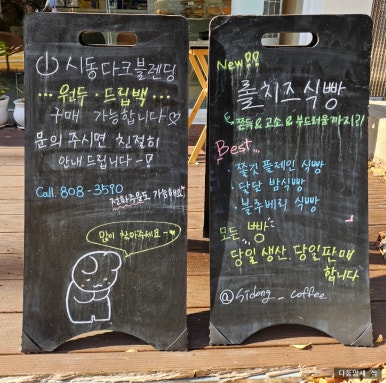 시동다크블렌딩
... 원두 · 드립백 ...
구매 가능합니다♡
문의 주시면 친절히
안내 드립니다~!
Call. 808-3590
전화주문도 가능해요♡
많이 찾아주세요~♥
New!!
롤치즈 식빵
쫀득&고소&부드러움까지!!
Best...
· 쫄깃 플레인 식빵
· 단단 밤식빵
· 블루베리 식빵
모든 빵
당일생산, 당일판매
합니다
@sidong_coffee